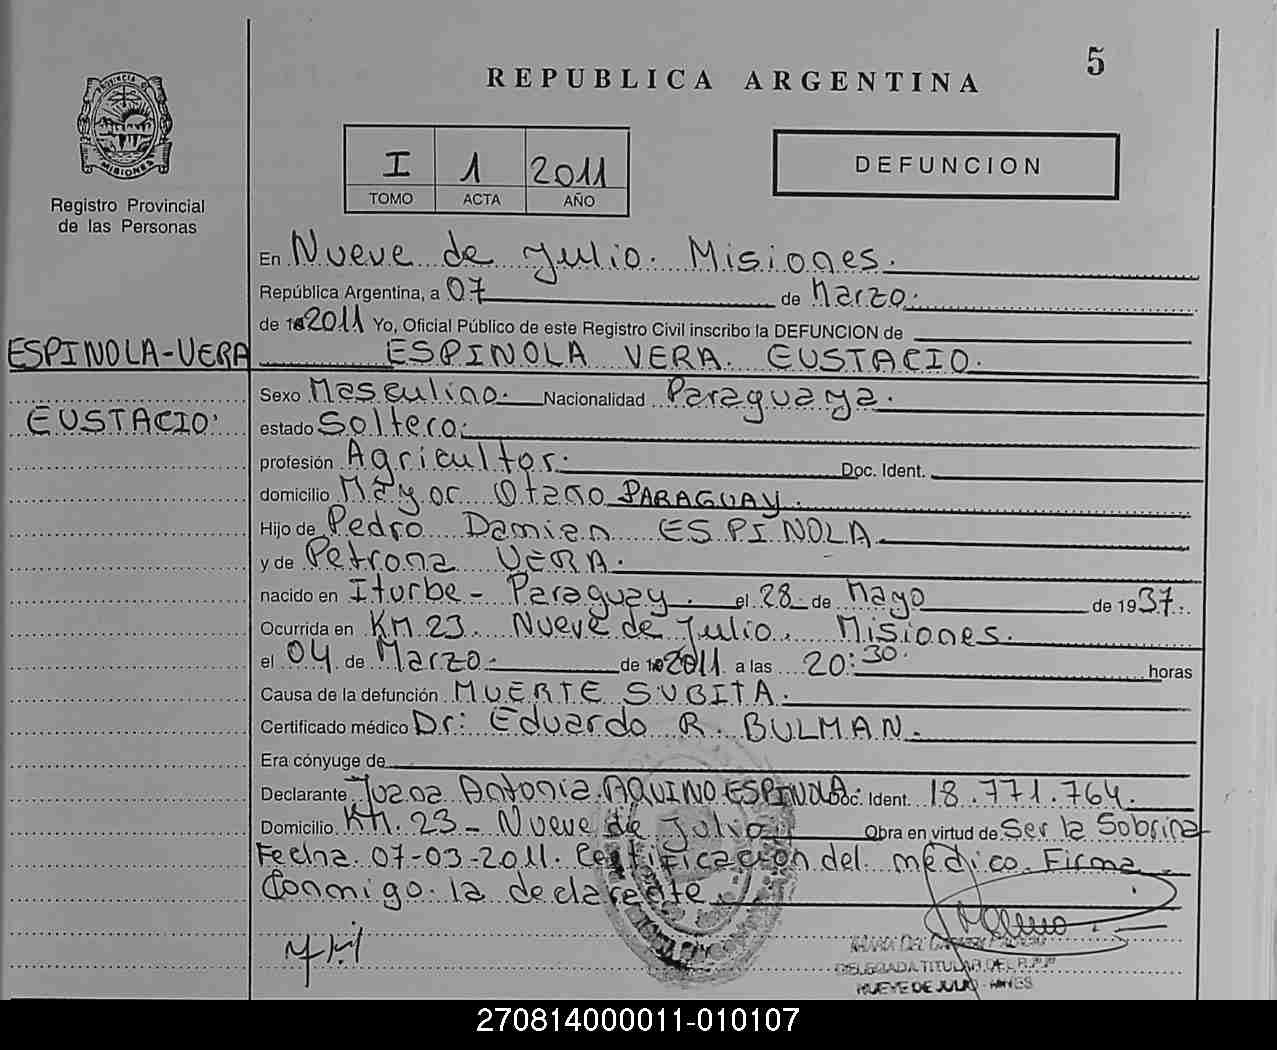 5
REPUBLICA ARGENTINA
PROVINCIA DE
MISIONES
Registro Provincial
de las Personas
I 1 2011
TOMO ACTA AÑO
DEFUNCION
En Nueve de Julio. Misiones.
República Argentina, a 07 de Marzo.
de 2011 Yo, Oficial Público de este Registro Civil inscribo la DEFUNCION de
ESPINOLA-VERA
ESPINOLA VERA. EUSTACIO.
Sexo Masculino. Nacionalidad Paraguaya.
EUSTACIO.
estado Soltero.
profesión Agricultor. Doc. Ident.
domicilio Mayor Otaño PARAGUAY.
Hijo de Pedro Damian ESPINOLA
y de Petrona VERA.
nacido en Iturbe - Paraguay. el 28 de Mayo de 1937.
Ocurrida en KM.23. Nueve de Julio. Misiones.
el 04 de Marzo. de 2011 a las 20:30. horas
Causa de la defunción MUERTE SUBITA.
Certificado médico Dr: Eduardo R. BULMAN.
Era cónyuge de
Declarante Juana Antonia AQUINO ESPINOLA. Doc. Ident. 18.771.764.
Domicilio KM. 23 - Nueve de Julio Obra en virtud de Ser la Sobrina
Fecha. 07-03-2011. Certificacion del medico. Firma
Conmigo la declarante.
DELEGADA TITULAR DEL R.P.P
NUEVE DE JULIO - MNES
270814000011-010107